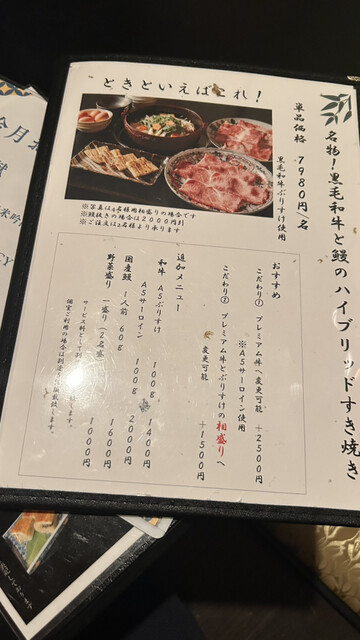 ときどといえばこれ！
名物！黒毛和牛と鰻のハイブリッドすき焼き
単品価格 7980円/名
黒毛和牛ぶりすけ使用
※写真は4名様用相盛りです
※鰻抜きの場合は2000円引
※ご注文は2名様より承ります
おすすめ
こだわり① プレミアム牛へ変更可能 +2500円
※A5サーロイン使用
こだわり② プレミアム牛とぶりすけの相盛りへ
変更可能 +1500円
追加メニュー
和牛 A5ぶりすけ 100g 1400円
A5サーロイン 100g 2000円
国産鰻 1人前 60g 1600円
野菜盛り 一盛り(2名盛) 1000円
サービス料として別
個室ご利用の場合は別途